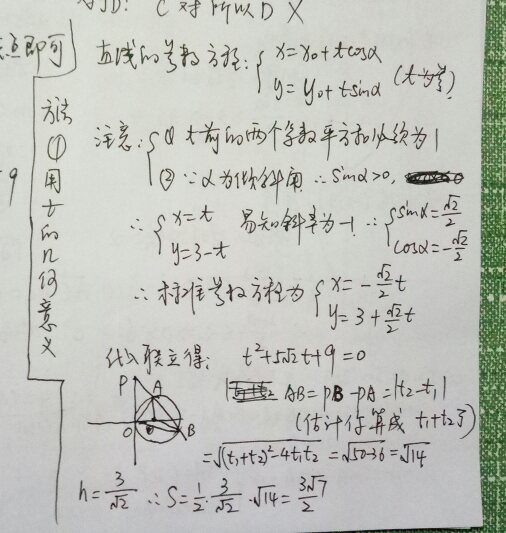 对JD: C对所以D X
点即可
直线的参数方程: { x=x₀+tcosα
y=y₀+tsinα (t为参)
方法①用t的几何意义
注意: { ① t前的两个系数平方和必须为1
② ∵α为倾斜角 ∴sinα>0,
∴ { x=t
y=3-t
易知斜率为-1 ∴ { sinα=√2/2
cosα=-√2/2
∴标准参数方程为 { x=-√2/2 t
y=3+√2/2 t
代入联立得: t²+5√2t+9=0
P A O B
AB=PB-PA=|t₂-t₁|
(估计你算成t₁+t₂了)
=√((t₁+t₂)²-4t₁t₂)=√(50-36)=√14
h=3/√2 ∴S=1/2·3/√2·√14=3√7/2